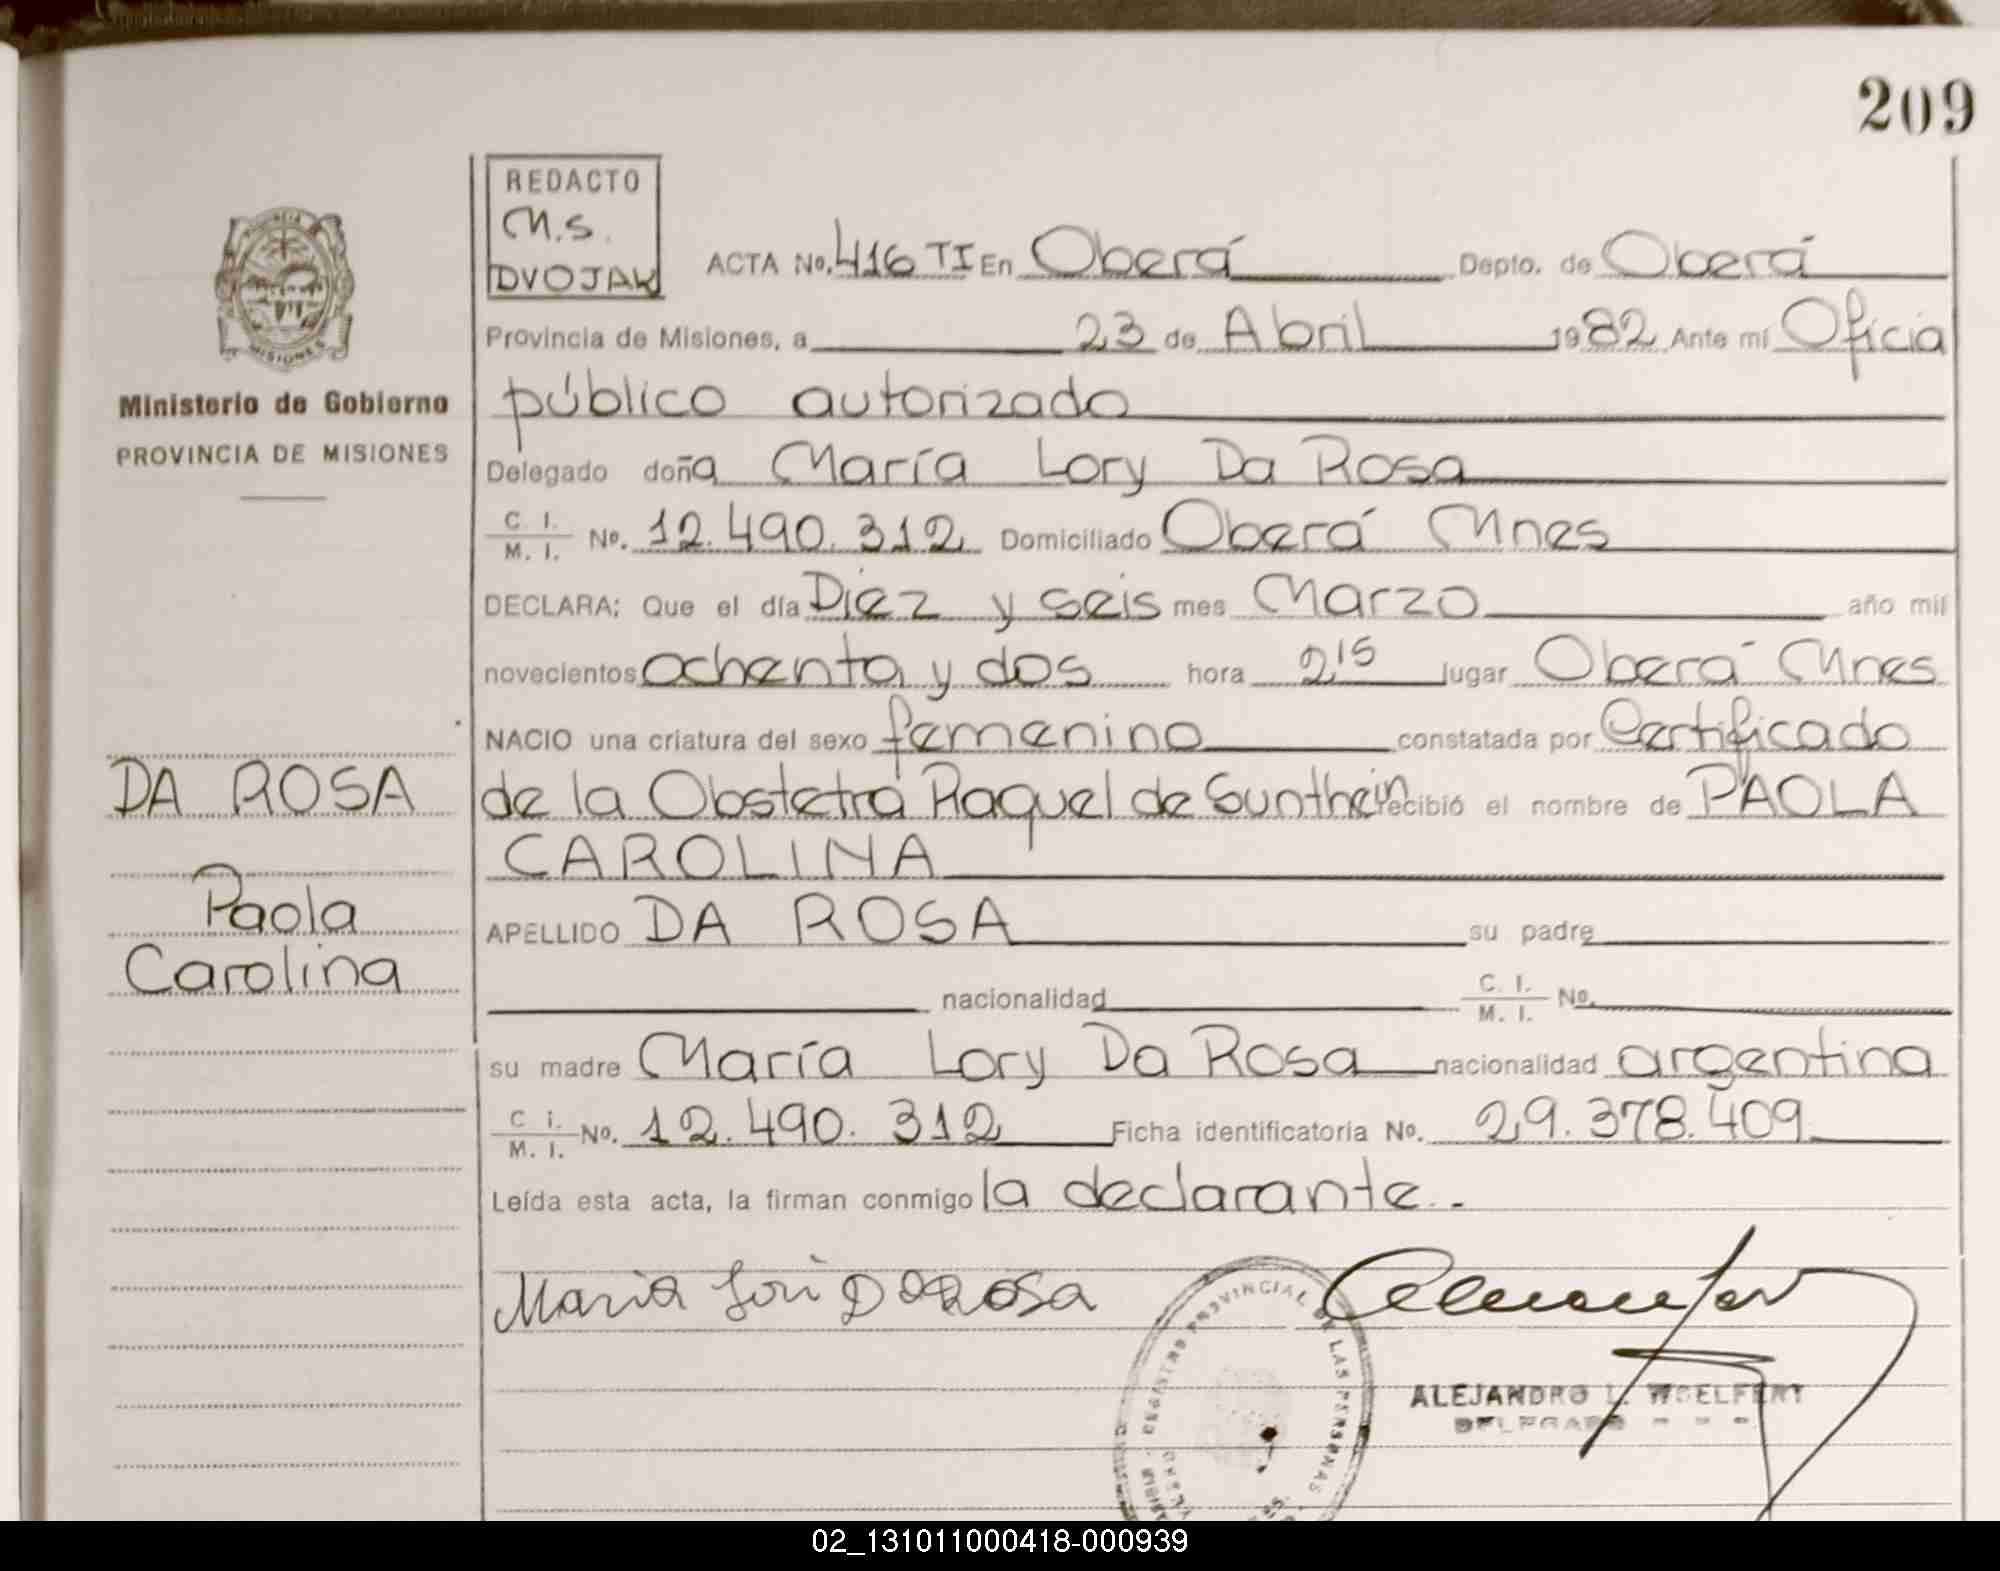 209
REDACTO
M.S.
DVOJAK
ACTA No. 416 TI En Oberá Depto. de Oberá
Provincia de Misiones, a 23 de Abril 1982 Ante mí Oficia
público autorizado
Delegado doña María Lory Da Rosa
C. I. / M. I. No. 12.490.312 Domiciliado Oberá Mnes
DECLARA: Que el día Diez y seis mes Marzo año mil
novecientos ochenta y dos hora 2,15 lugar Oberá Mnes
NACIO una criatura del sexo femenino constatada por Certificado
de la Obstetra Raquel de Sunthein recibió el nombre de PAOLA
CAROLINA
APELLIDO DA ROSA su padre
nacionalidad C. I. / M. I. No.
su madre María Lory Da Rosa nacionalidad argentina
C. I. / M. I. No. 12.490.312 Ficha identificatoria No. 29.378.409
Leída esta acta, la firman conmigo la declarante.-
Maria Lori DaRosa
ALEJANDRO L. WOELFERT
DELEGADO
REGISTRO PROVINCIAL DE LAS PERSONAS
MISIONES
Ministerio de Gobierno
PROVINCIA DE MISIONES
DA ROSA
Paola
Carolina
02_131011000418-000939